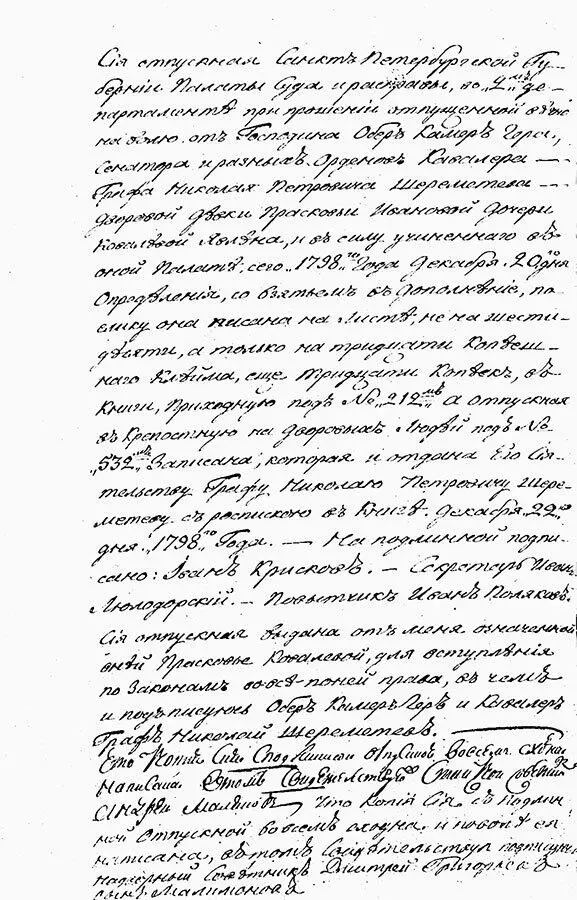 Сія отпускная Санктъ Петербургской Гу-
берніи Палаты Суда и расправы, во „2мъ“ де-
партаментѣ при прошеніи отпущенной вѣчно
на волю отъ Господина Оберъ Камеръ Гера,
Сенатора и разныхъ Орденовъ Кавалера —
Графа Николая Петровича Шереметева —
дворовой дѣвки Прасковьи Ивановой дочери
Ковалевой явлена, и въ силу учиненнаго въ
оной Палатѣ, сего „1798го“ Года декабря „20го“ дня
Опредѣленія, со взятьемъ въ дополненіе, по-
елику она писана на листѣ, не на шести-
десяти, а только на тридцати копѣеш-
наго клейма, еще тридцати копѣекъ, въ
книги, приходную подъ № „212мъ“ а отпускная
въ крепостную на дворовыхъ людей подъ №
„532мъ“ Записана, которая и отдана Его Сія-
тельству Графу Николаю Петровичу Шере-
метеву съ роспискою въ книгѣ, декабря „22го“
дня „1798го“ Года. — На подлинной подпи-
сано: Іванъ Крисковъ. — Секретарь Иванъ
Люлодорский. — Повытчикъ Иванъ Поляковъ.
Сія отпускная выдана отъ меня означенной
Прасковье Ковалевой, для вступленія
по Законамъ во всѣ права, въ чемъ
и подъписуюсь Оберъ Камеръ Геръ и Кавалеръ
Графъ Николай Шереметевъ.
во всемъ сходна
написана
что копія сія съ подлин-
ной отпускной во всемъ сходна и по волѣ ея
написана, въ томъ свидѣтельствуя подписуюсь
надворный Совѣтникъ Дмитрей Григорьевъ
сынъ Малимоновъ